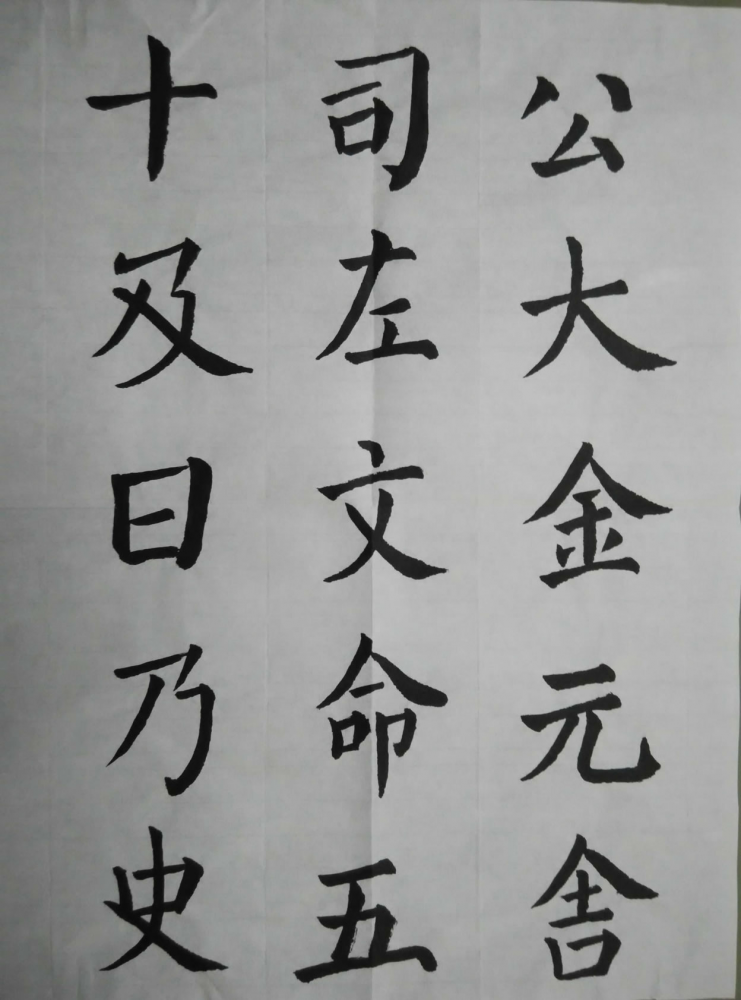 公大金元舎
司左文命五
十及曰乃史